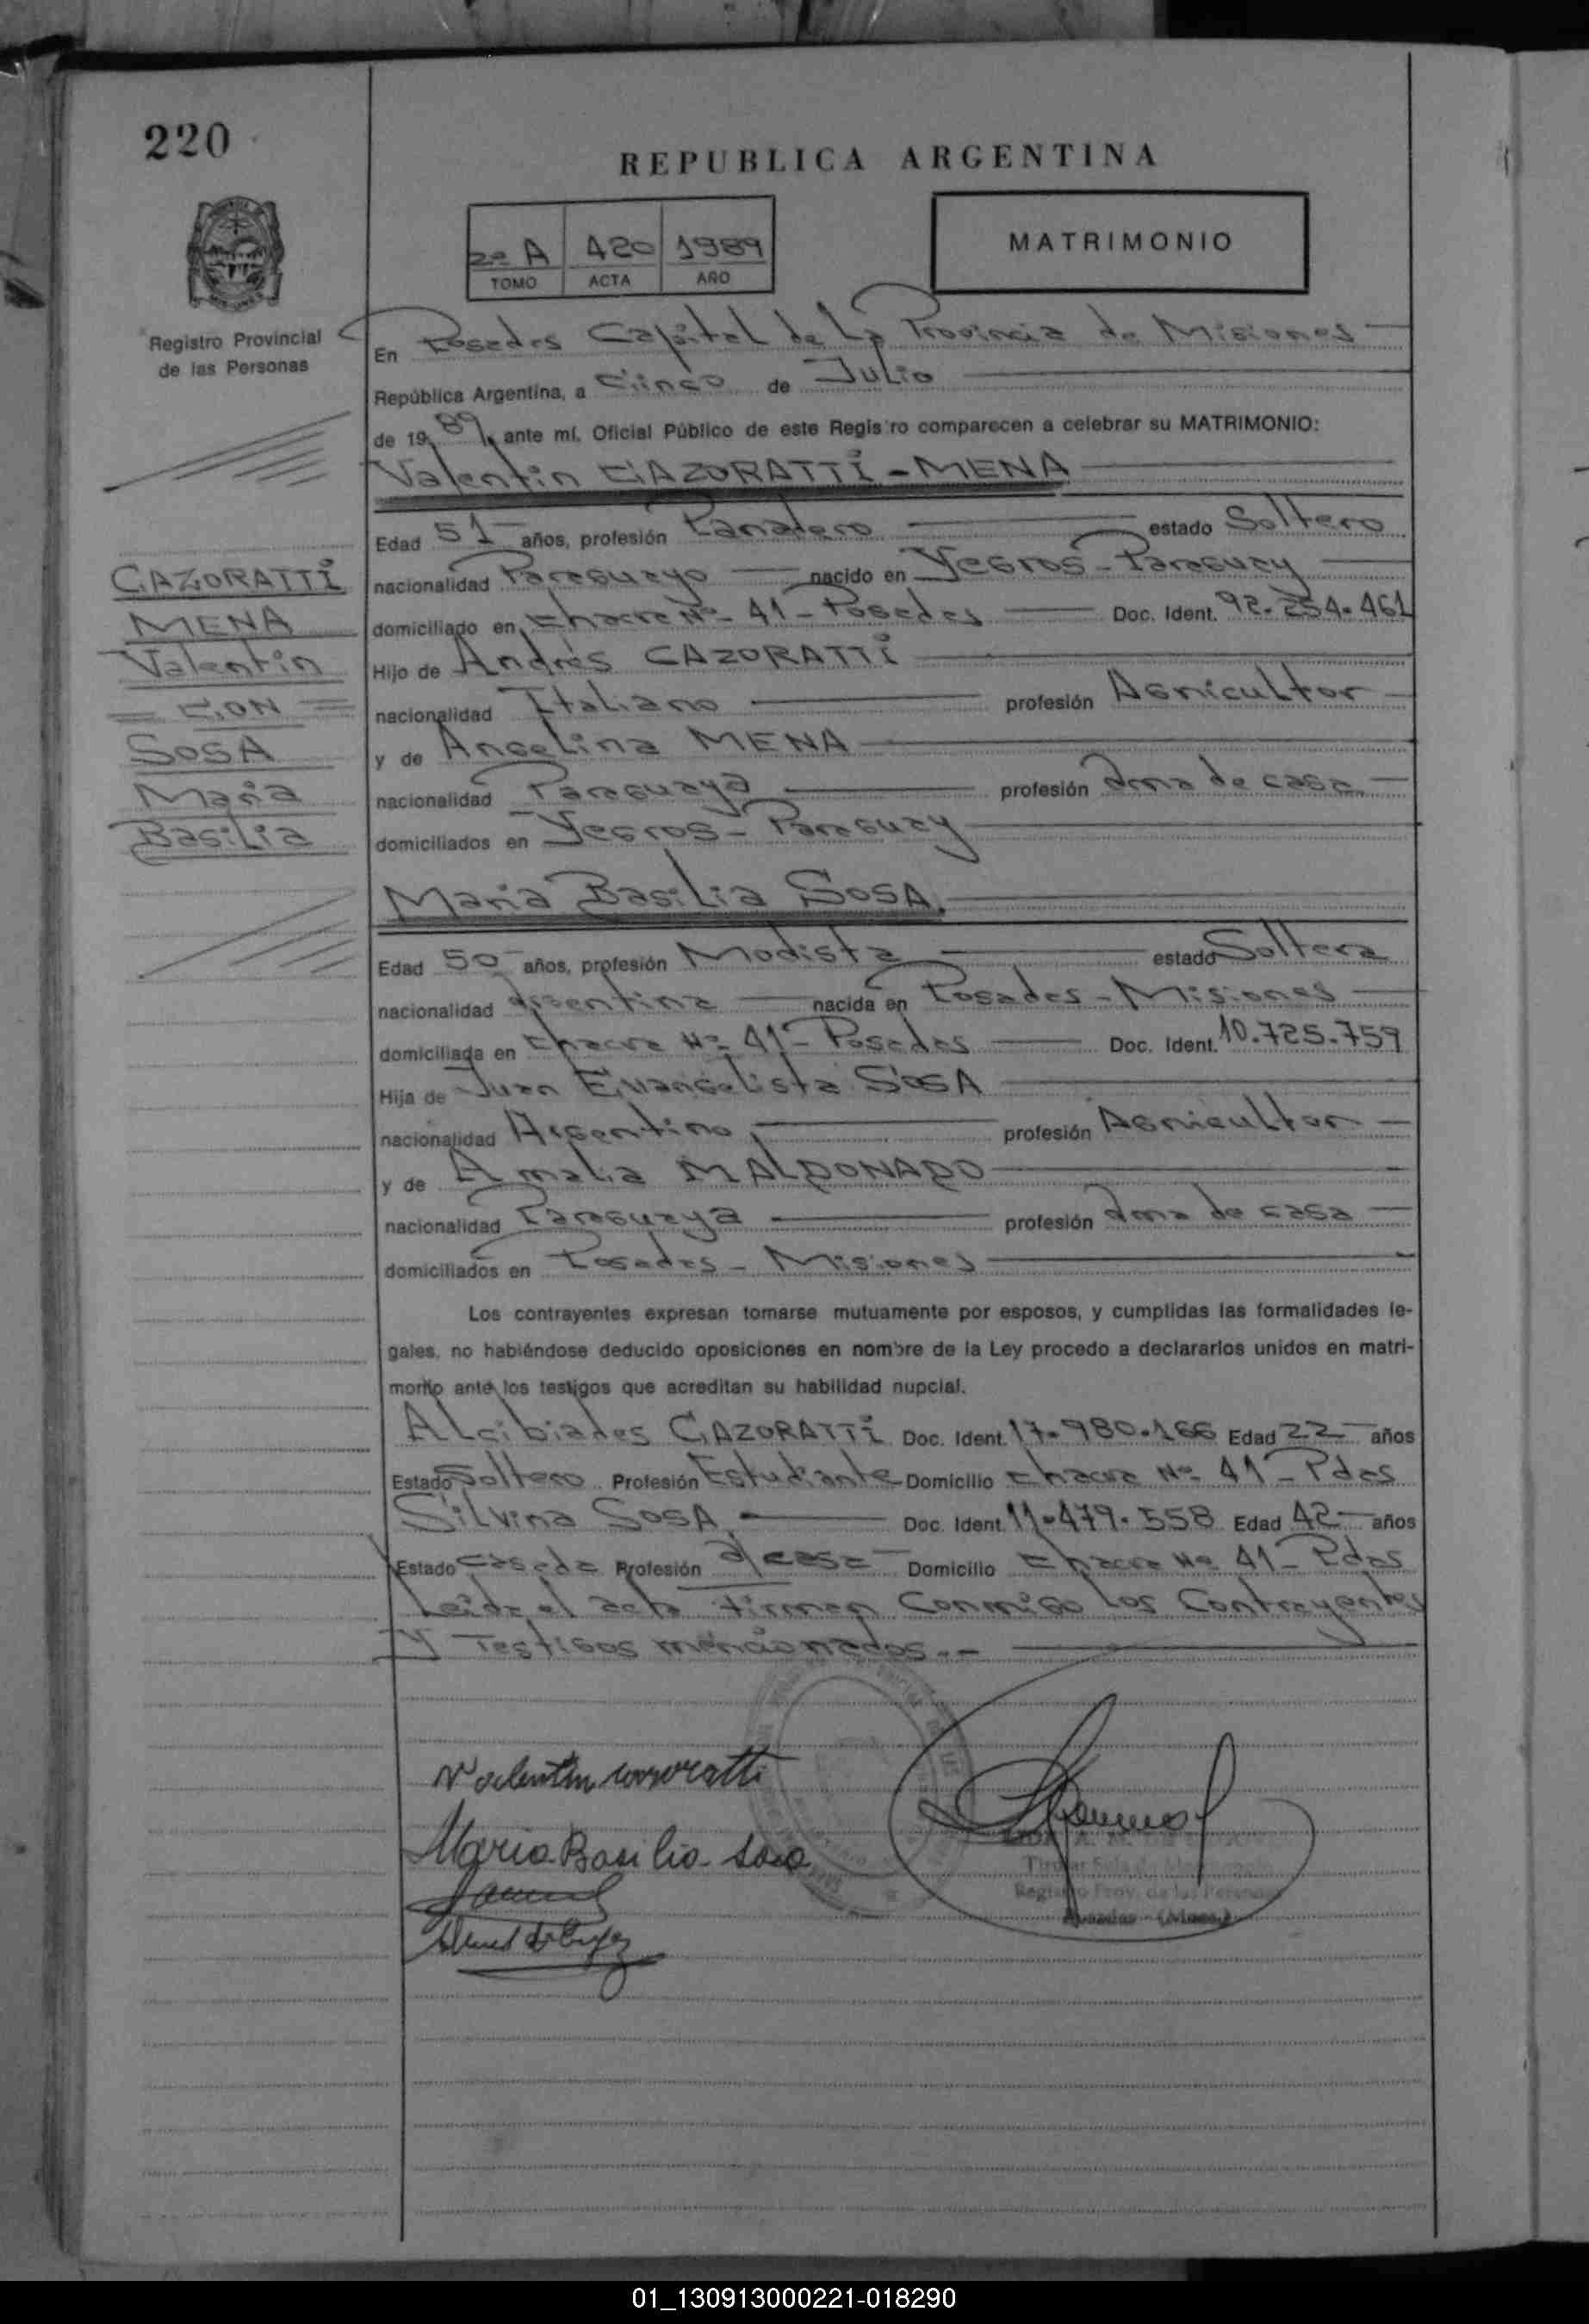 220
REPUBLICA ARGENTINA
2º A 420 1989
TOMO ACTA AÑO
MATRIMONIO
Registro Provincial
de las Personas
En Posadas Capital de La Provincia de Misiones
República Argentina, a Cinco de Julio
de 19 89, ante mí, Oficial Público de este Registro comparecen a celebrar su MATRIMONIO:
Valentin CAZORATTI - MENA
Edad 51 años, profesión Panadero estado Soltero
nacionalidad Paraguayo nacido en Yegros - Paraguay
domiciliado en Chacra Nº 41 - Posadas Doc. Ident. 92.254.461
Hijo de Andrés CAZORATTI
nacionalidad Italiano profesión Agricultor
y de Angelina MENA
nacionalidad Paraguaya profesión ama de casa
domiciliados en Yegros - Paraguay
CAZORATTI
MENA
Valentin
= CON =
SOSA
Maria
Basilia
Maria Basilia SOSA
Edad 50 años, profesión Modista estado Soltera
nacionalidad argentina nacida en Posadas - Misiones
domiciliada en Chacra Nº 41 - Posadas Doc. Ident. 10.725.759
Hija de Juan Evangelista SOSA
nacionalidad Argentino profesión Agricultor
y de Amalia MALDONADO
nacionalidad Paraguaya profesión ama de casa
domiciliados en Posadas - Misiones
Los contrayentes expresan tomarse mutuamente por esposos, y cumplidas las formalidades le-
gales, no habiéndose deducido oposiciones en nombre de la Ley procedo a declararlos unidos en matri-
monio ante los testigos que acreditan su habilidad nupcial.
Alcibiades CAZORATTI Doc. Ident. 17.980.166 Edad 22 años
Estado Soltero Profesión Estudiante Domicilio Chacra Nº 41 - Pdas
Silvina SOSA Doc. Ident. 11.479.558 Edad 42 años
Estado Casada Profesión a/casa Domicilio Chacra Nº 41 - Pdas
Leida el acta Firman Conmigo Los Contrayentes
Y Testigos mencionados.-
Valentin cazoratti
Maria Basilia Sosa
Registro Prov. de las Personas
Posadas - (Mnes.)
01_130913000221-018290